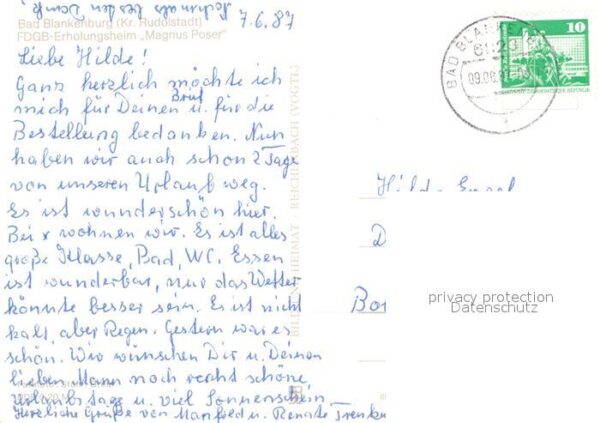 Nochmals besten Dank
Bad Blankenburg (Kr. Rudolstadt)
FDGB-Erholungsheim „Magnus Poser"
7.6.87
Liebe Hilde!
Ganz herzlich möchte ich
mich für Deinen Brief u. für die
Bestellung bedanken. Nun
haben wir auch schon 2 Tage
von unseren Urlaub weg.
Es ist wunderschön hier.
Bei x wohnen wir. Es ist alles
große Klasse, Bad, WC. Essen
ist wunderbar, nur das Wetter
könnte besser sein. Es ist nicht
kalt, aber Regen. Gestern war es
schön. Wir wünschen Dir u. Deinen
lieben Mann noch recht schöne
Urlaubstage u. viel Sonnenschein
Herzliche Grüße von Manfred u. Renate
BILD UND HEIMAT REICHENBACH (VOGTL)
BAD BLANKENBURG
6823
10
Hilde
D
privacy protection
Datenschutz